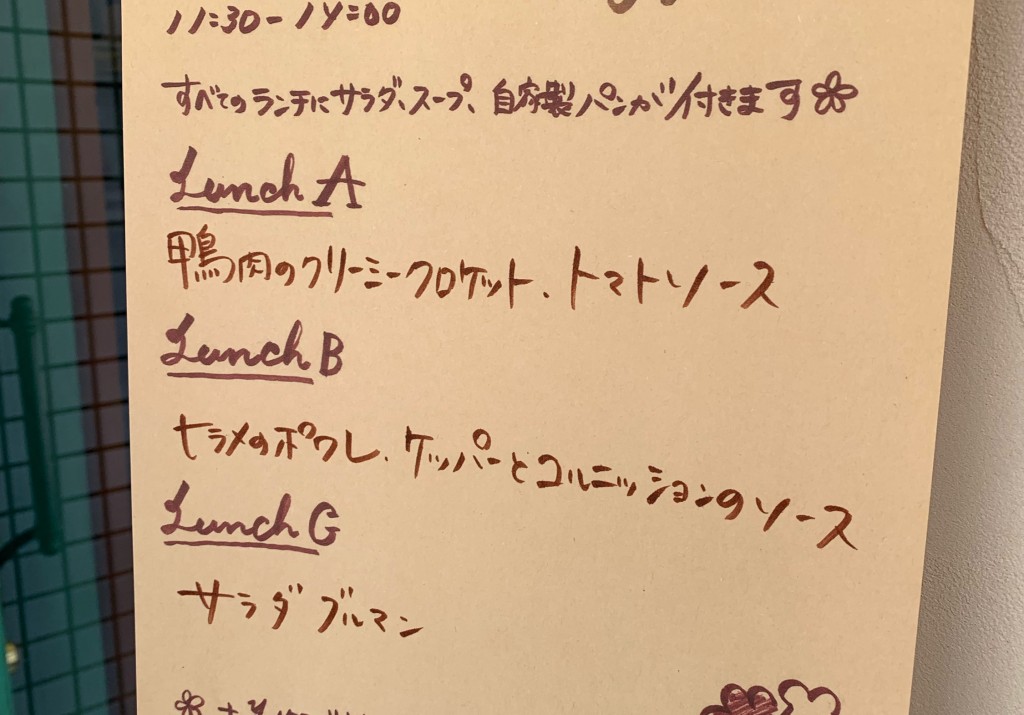 11:30-14:00
すべてのランチにサラダ、スープ、自家製パンが付きます
Lunch A
鴨肉のクリーミークロケット、トマトソース
Lunch B
ヒラメのポワレ、ケッパーとコルニッションのソース
Lunch G
サラダ ブルマン